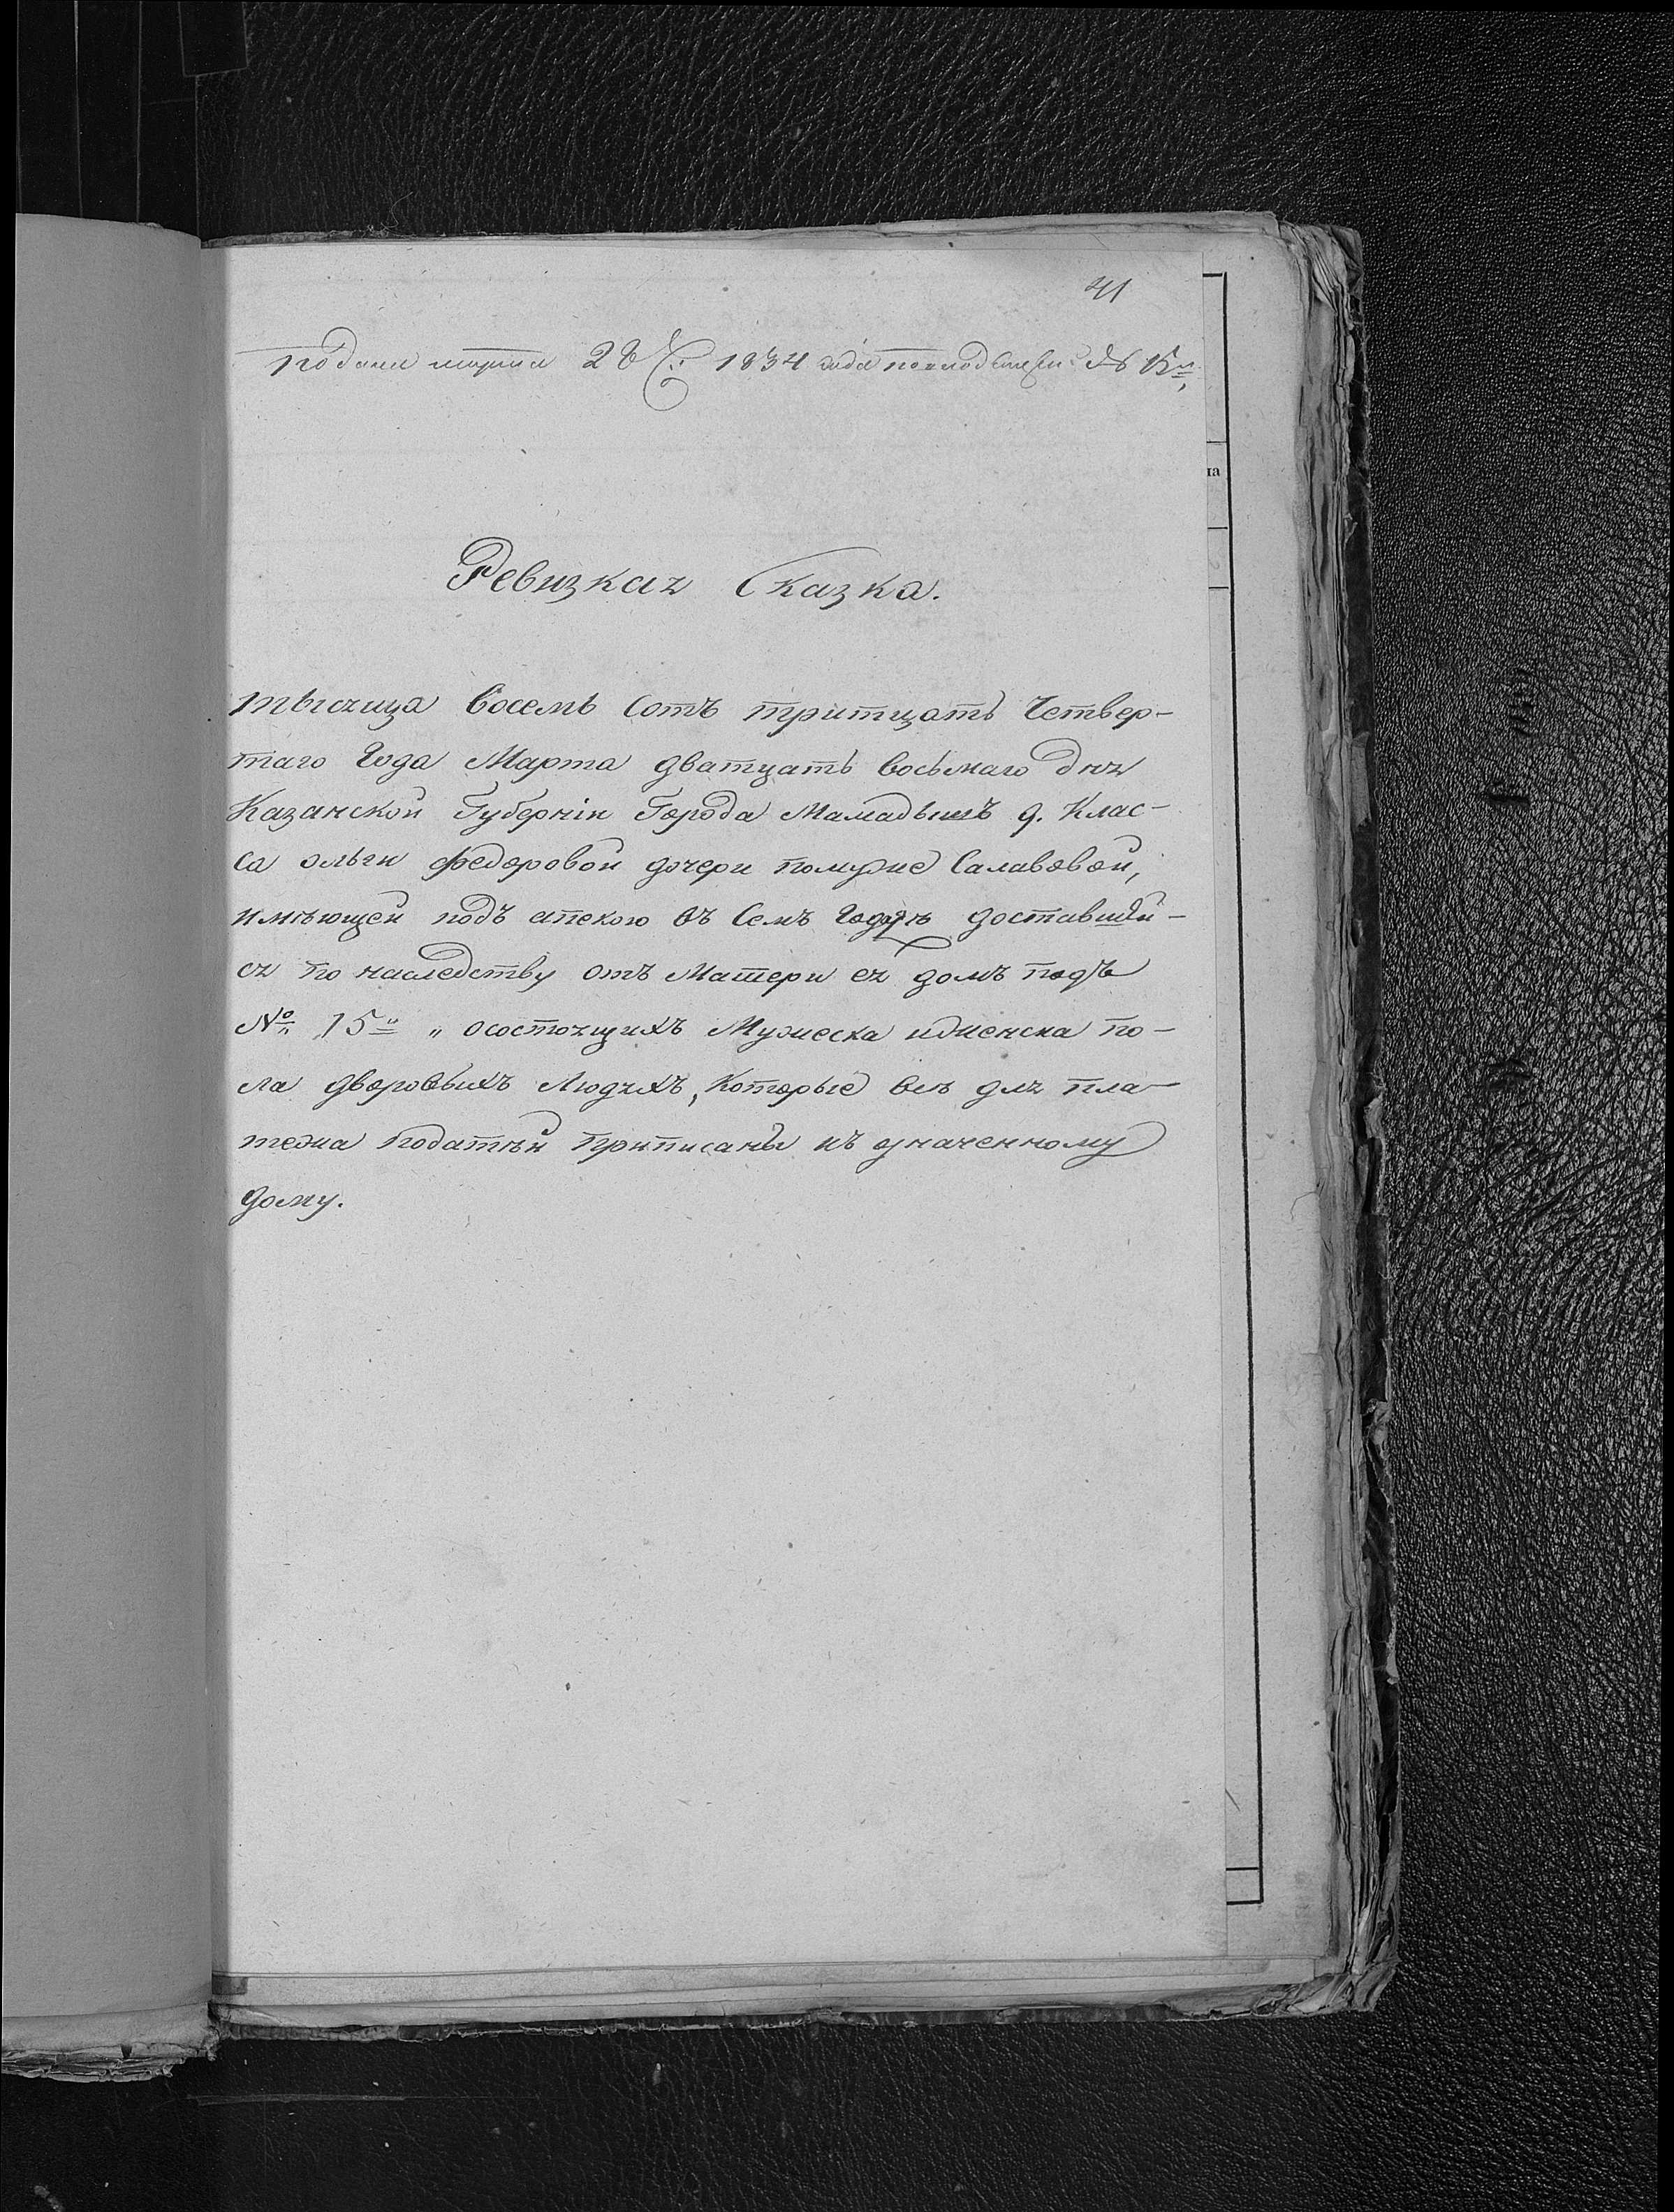 41
подана марта 28 1834 года № 15
ıа
Ревизкая Сказка.
тысяща восемь сотъ тритцать четвер-
таго Года Марта дватцать восьмаго дня
Казанской Губерніи Города Мамадышъ 9. Клас-
са ольги федоровой дочери помуже Салавовой,
имѣющей подъ апекою въ Семъ Годѣ доставший-
ся по наследству отъ Матери ея домъ подъ
№ 15 „ осостоящихъ Мужеска иженска по-
ла дворовыхъ Людяхъ, которые всѣ для пла-
тежа податѣй приписаны къ означенному
дому.